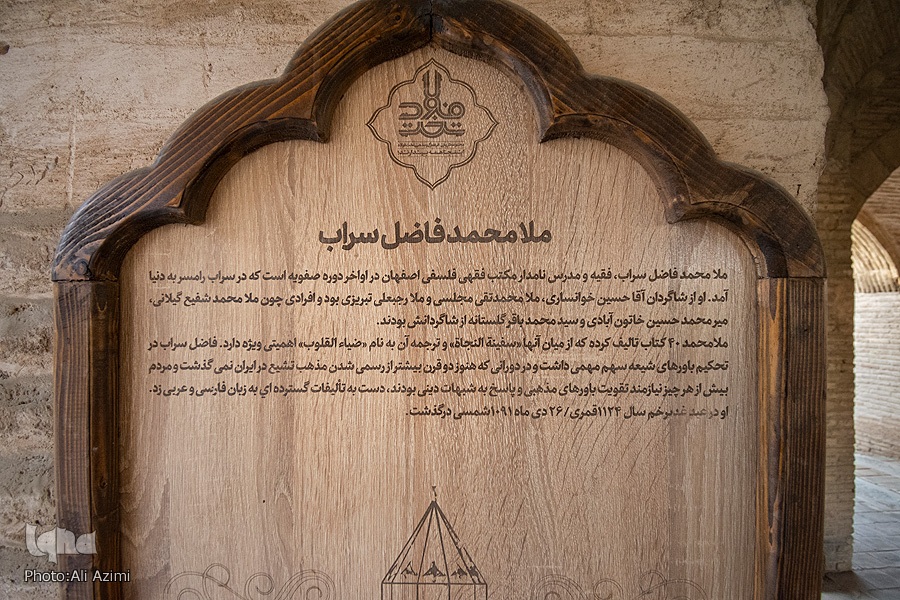 تخت فولاد
ملا محمد فاضل سراب
ملا محمد فاضل سراب، فقیه و مدرس نامدار مکتب فقهی فلسفی اصفهان در اواخر دوره صفویه است که در سراب رامسر به دنیا
آمد. او از شاگردان آقا حسین خوانساری، ملا محمدتقی مجلسی و ملا رجبعلی تبریزی بود و افرادی چون ملا محمد شفیع گیلانی،
میر محمد حسین خاتون آبادی و سید محمد باقر گلستانه از شاگردانش بودند.
ملامحمد ۴۰ کتاب تالیف کرده که از میان آنها «سفینة النجاة» و ترجمه آن به نام «ضیاء القلوب» اهمیتی ویژه دارد. فاضل سراب در
تحکیم باورهای شیعه سهم مهمی داشت و در دورانی که هنوز دو قرن بیشتر از رسمی شدن مذهب تشیع در ایران نمی گذشت و مردم
بیش از هر چیز نیازمند تقویت باورهای مذهبی و پاسخ به شبهات دینی بودند، دست به تألیفات گسترده اي به زبان فارسی و عربی زد.
او در عید غدیرخم سال ۱۱۲۴ قمری/ ۲۶ دی ماه ۱۰۹۱ شمسی درگذشت.
iqna
Photo:Ali Azimi